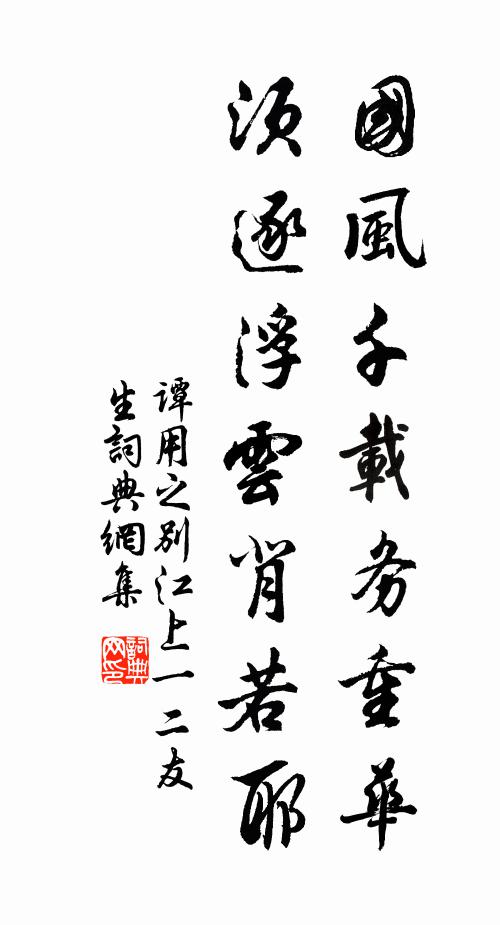 國風千載务重華
須逐浮雲背若耶
譚用之別江上一二友
生詞典網集
詞典
网印